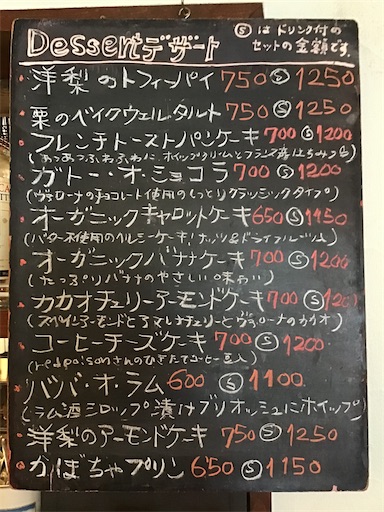 Dessert デザート
Ⓢは ドリンク付の
セットの金額です。
洋梨のトフィーパイ 750 Ⓢ 1250
栗のベイクウェルタルト 750 Ⓢ 1250
フレンチトーストパンケーキ 700 Ⓢ 1200
(あつあつふわふわに ホイップクリームとフランス産はちみつ
ガトー・オ・ショコラ 700 Ⓢ 1200
(ヴァローナのチョコレート使用のしっとりクラシックタイプ)
オーガニックキャロットケーキ 650 Ⓢ 1150
(バター不使用のヘルシーケーキ!ナッツ&ドライフルーツ入)
オーガニックバナナケーキ 700 Ⓢ 1200
(たっぷりバナナのやさしい味わい)
カカオチェリーアーモンドケーキ 700 Ⓢ 1200
(スペインアーモンドとチェリーとヴァローナのカカオ)
コーヒーチーズケーキ 700 Ⓢ 1200
(red poisonさんのひきたてコーヒー豆入)
ババ・オ・ラム 600 Ⓢ 1100
(ラム酒シロップ漬けブリオッシュにホイップ)
洋梨のアーモンドケーキ 750 Ⓢ 1250
かぼちゃプリン 650 Ⓢ 1150